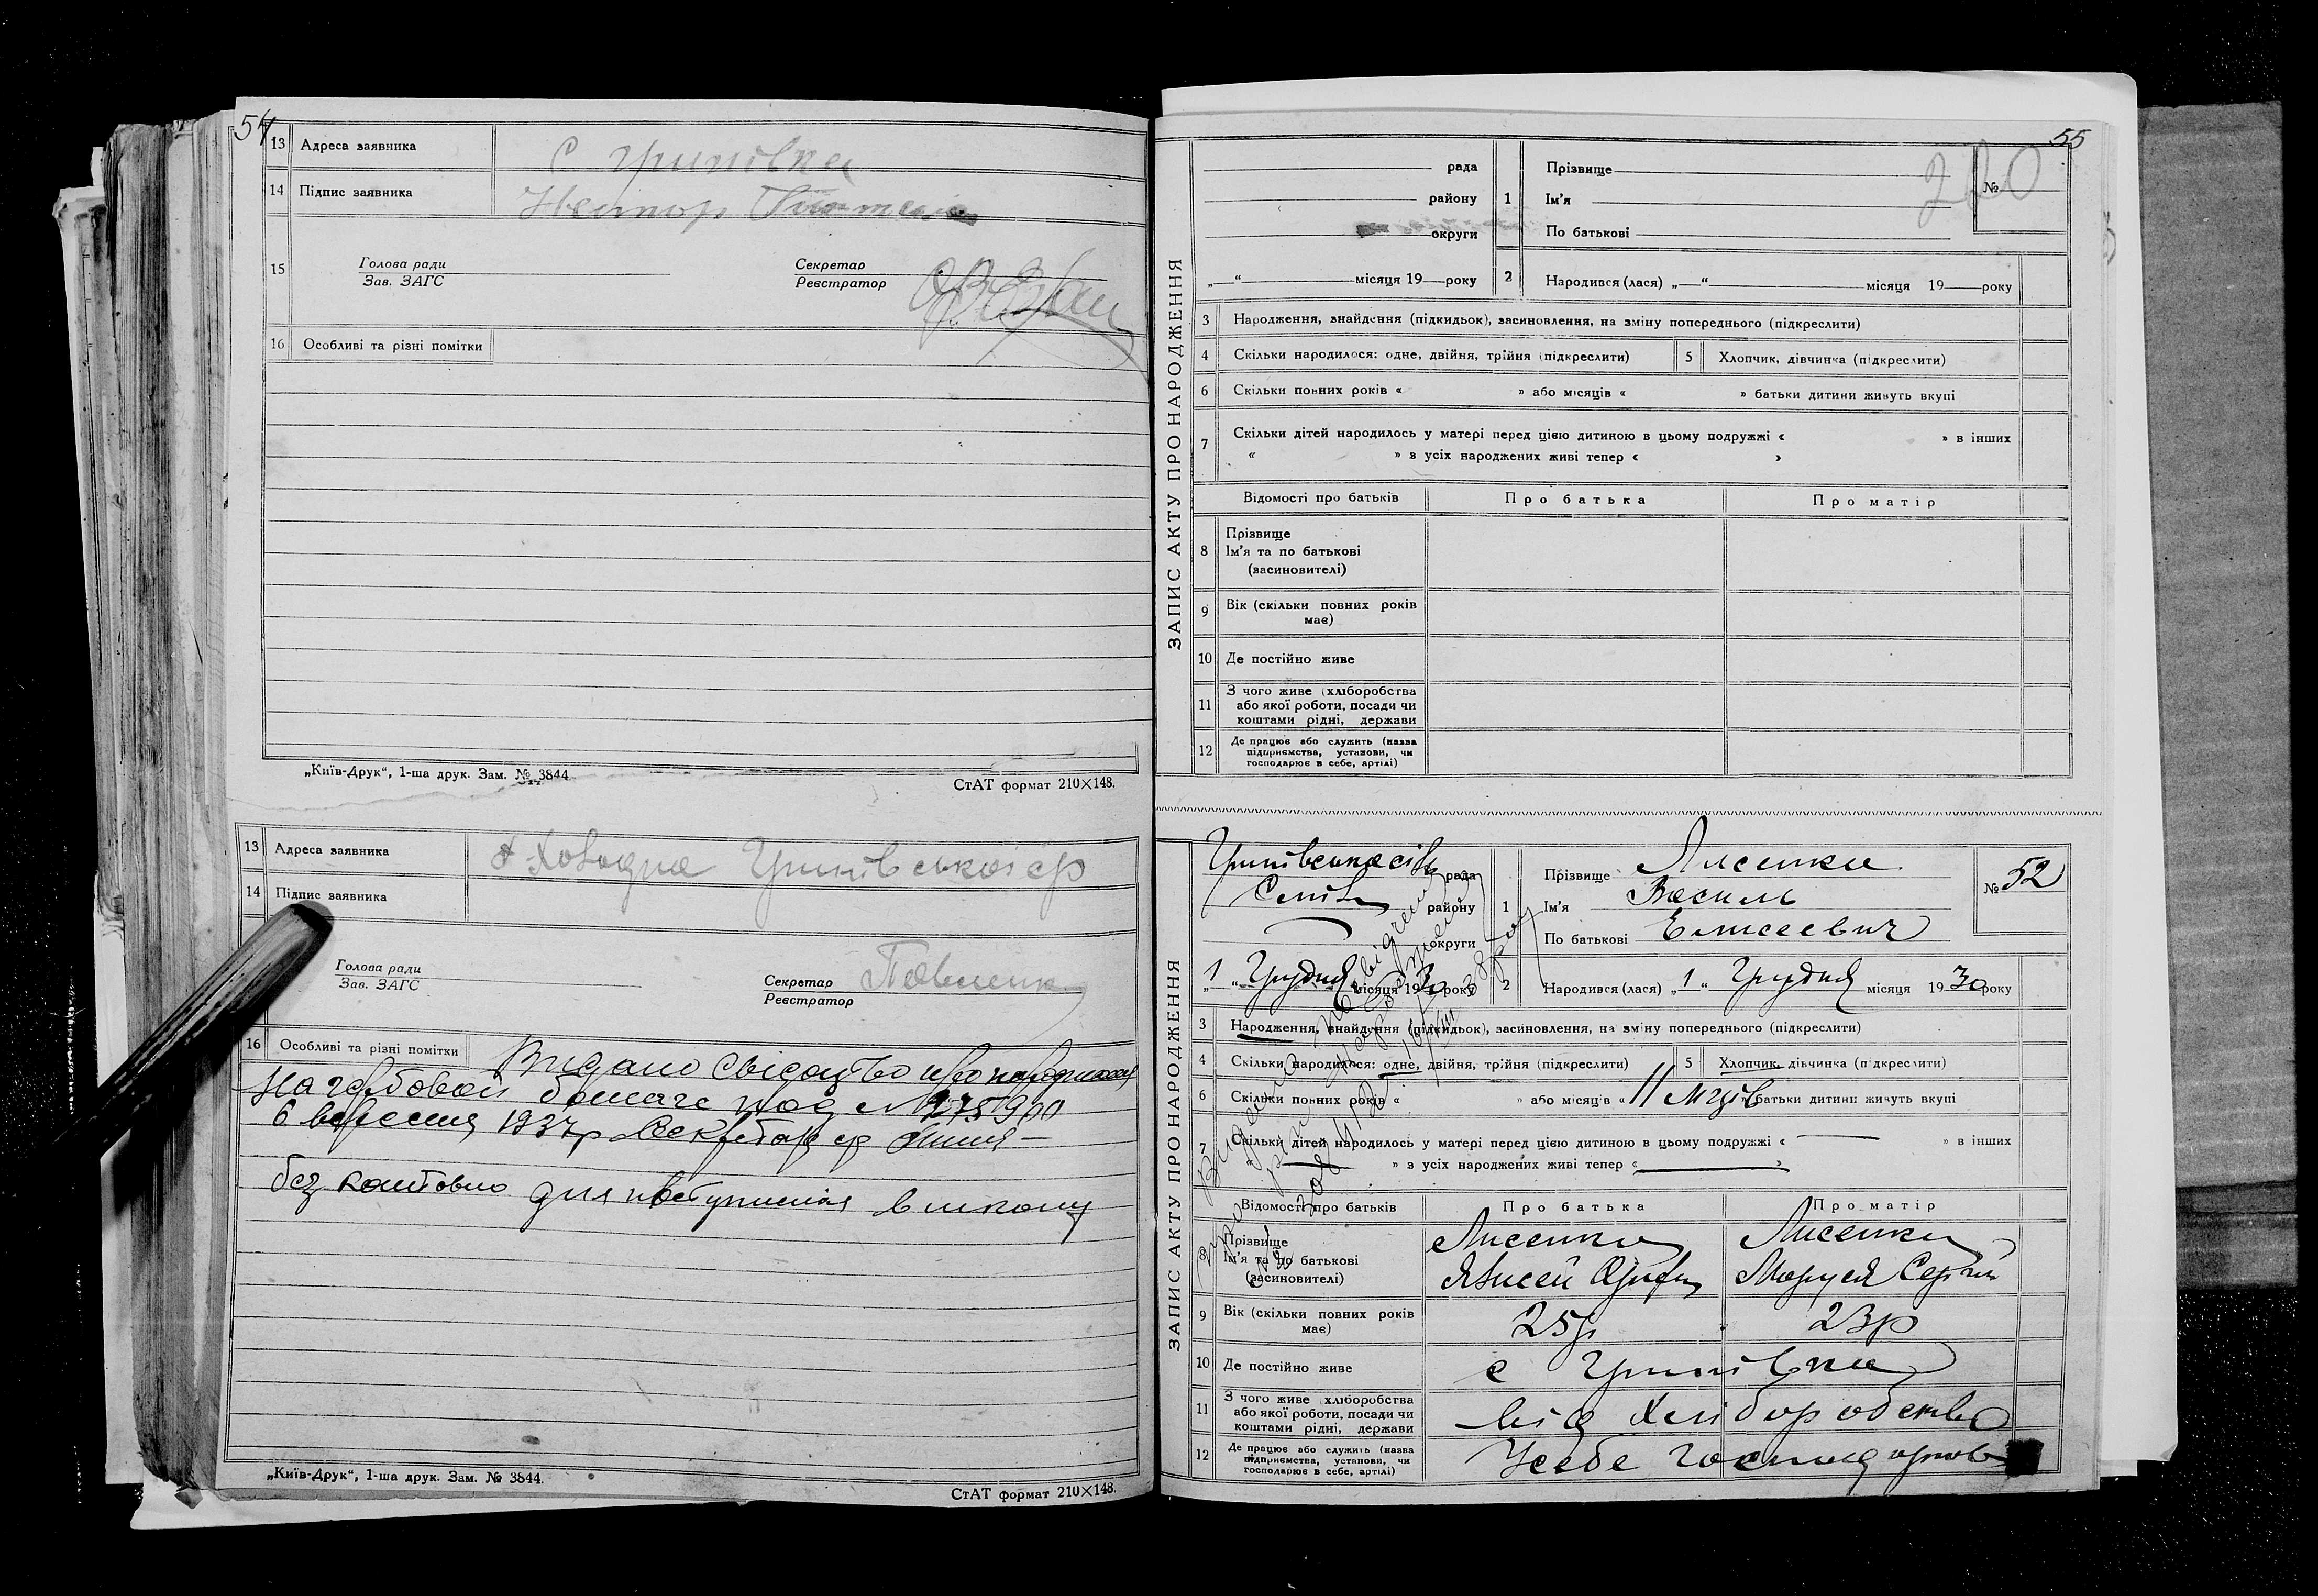 54
13 Адреса заявника с Грипівка
14 Підпис заявника
15 Голова ради
Зав. ЗАГС
Секретар
Реєстратор
16 Особливі та різні помітки
„Київ-Друк“, 1-ша друк. Зам. № 3844
СтАТ формат 210×148.
13 Адреса заявника
14 Підпис заявника
Голова ради
Зав. ЗАГС
Секретар
Реєстратор
16 Особливі та різні помітки Видано свідоцтво про народження
на гербовой бомаге под №
6 вересня 1937р Секретар ср
без коштовно для поступлення в школу
„Київ-Друк“, 1-ша друк. Зам. № 3844.
СтАТ формат 210×148.
55
ЗАПИС АКТУ ПРО НАРОДЖЕННЯ
рада
району
округи
„ “ місяця 19 року
1 Прізвище
Ім'я
По батькові
№
2 Народився (лася) „ “ місяця 19 року
3 Народження, знайдення (підкидьок), засиновлення, на зміну попереднього (підкреслити)
4 Скільки народилося: одне, двійня, трійня (підкреслити) 5 Хлопчик, дівчинка (підкреслити)
6 Скільки повних років « » або місяців « » батьки дитини живуть вкупі
7 Скільки дітей народилось у матері перед цією дитиною в цьому подружжі « » в інших
« » в усіх народжених живі тепер « »
Відомості про батьків Про батька Про матір
8 Прізвище
Ім'я та по батькові
(засиновителі)
9 Вік (скільки повних років
має)
10 Де постійно живе
11 З чого живе (хліборобства
або якої роботи, посади чи
коштами рідні, держави
12 Де працює або служить (назва
підприємства, установи, чи
господарює в себе, артілі)
ЗАПИС АКТУ ПРО НАРОДЖЕННЯ
рада
району
округи
„1“ Грудня місяця 1930 року
1 Прізвище Лисенко
Ім'я Василь
По батькові Елисеевич
№ 52
2 Народився (лася) „1“ Грудня місяця 1930 року
3 Народження, знайдення (підкидьок), засиновлення, на зміну попереднього (підкреслити)
4 Скільки народилося: одне, двійня, трійня (підкреслити) 5 Хлопчик, дівчинка (підкреслити)
6 Скільки повних років « » або місяців « 11 м-ців батьки дитини живуть вкупі
7 Скільки дітей народилось у матері перед цією дитиною в цьому подружжі « — » в інших
« — » з усіх народжених живі тепер « — »
Відомості про батьків Про батька Про матір
8 Прізвище Лисенко Лисенко
Ім'я та по батькові
(засиновителі) Маруся
9 Вік (скільки повних років
має) 25р 23р
10 Де постійно живе с Грипівка
11 З чого живе (хліборобства
або якої роботи, посади чи
коштами рідні, держави від Хліборобство
12 Де працює або служить (назва
підприємства, установи, чи
господарює в себе, артілі) У себе господарює